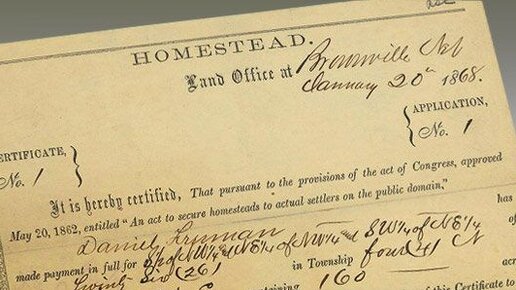 HOMESTEAD.
Land Office at Brownville Neb
January 20th 1868.
CERTIFICATE, No. 1 }
{ APPLICATION, No. 1
It is hereby certified, That pursuant to the provisions of the act of Congress, approved
May 20, 1862, entitled "An act to secure homesteads to actual settlers on the public domain,"
Daniel has
made payment in full for S½ of NW¼ and SW¼ of NE¼ of
Twenty Six (26) in Township four (4) N
160
of this Certificate to